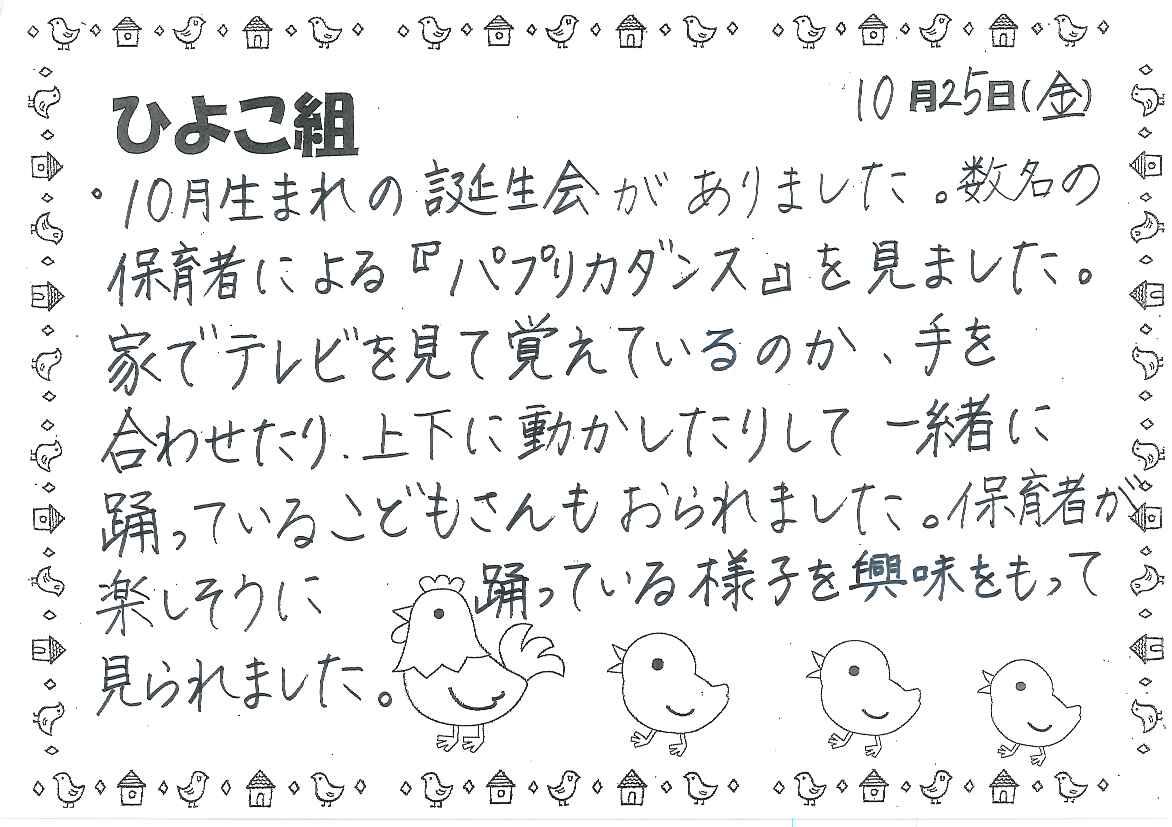 10月25日(金)
ひよこ組
・10月生まれの誕生会がありました。数名の
保育者による『パプリカダンス』を見ました。
家でテレビを見て覚えているのか、手を
合わせたり、上下に動かしたりして一緒に
踊っているこどもさんもおられました。保育者が
楽しそうに踊っている様子を興味をもって
見られました。